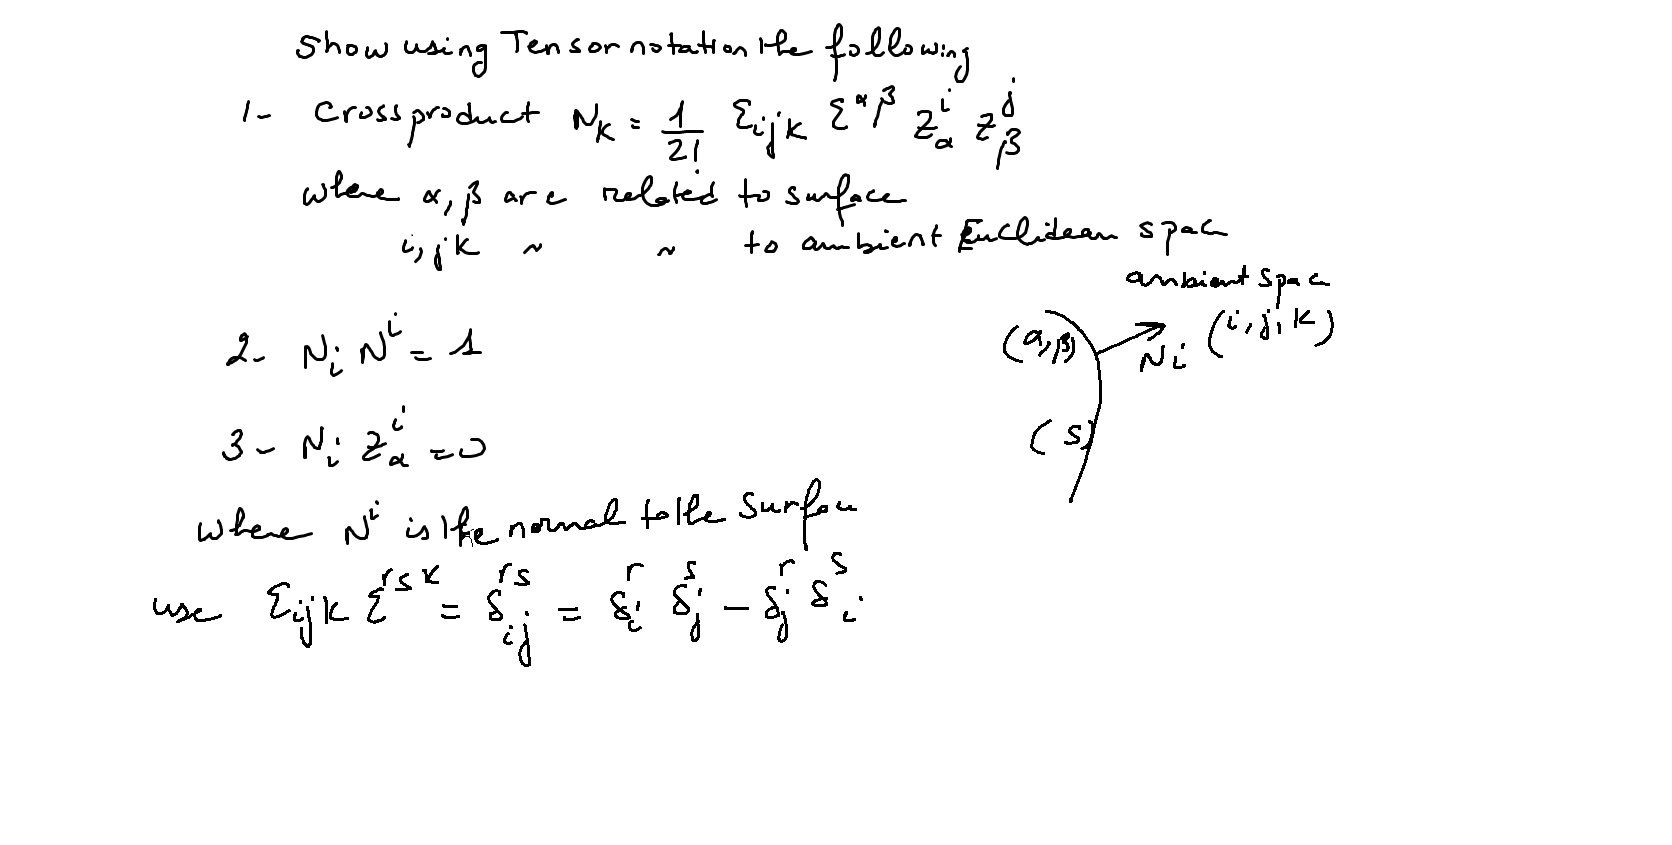 Show using Tensor notation the following
1- Cross product N_k = 1/2! ε_ijk ε^αβ Z^i_α Z^j_β
where α, β are related to surface
i, j k ~ ~ to ambient Euclidean spac
ambient spac
(α, β) N_i (i, j, k)
2- N_i N^i = 1
3- N_i Z^i_α = 0
(S)
where N^i is the normal to the Surfac
use ε_ijk ε^rsk = δ^rs_ij = δ^r_i δ^s_j - δ^r_j δ^s_i